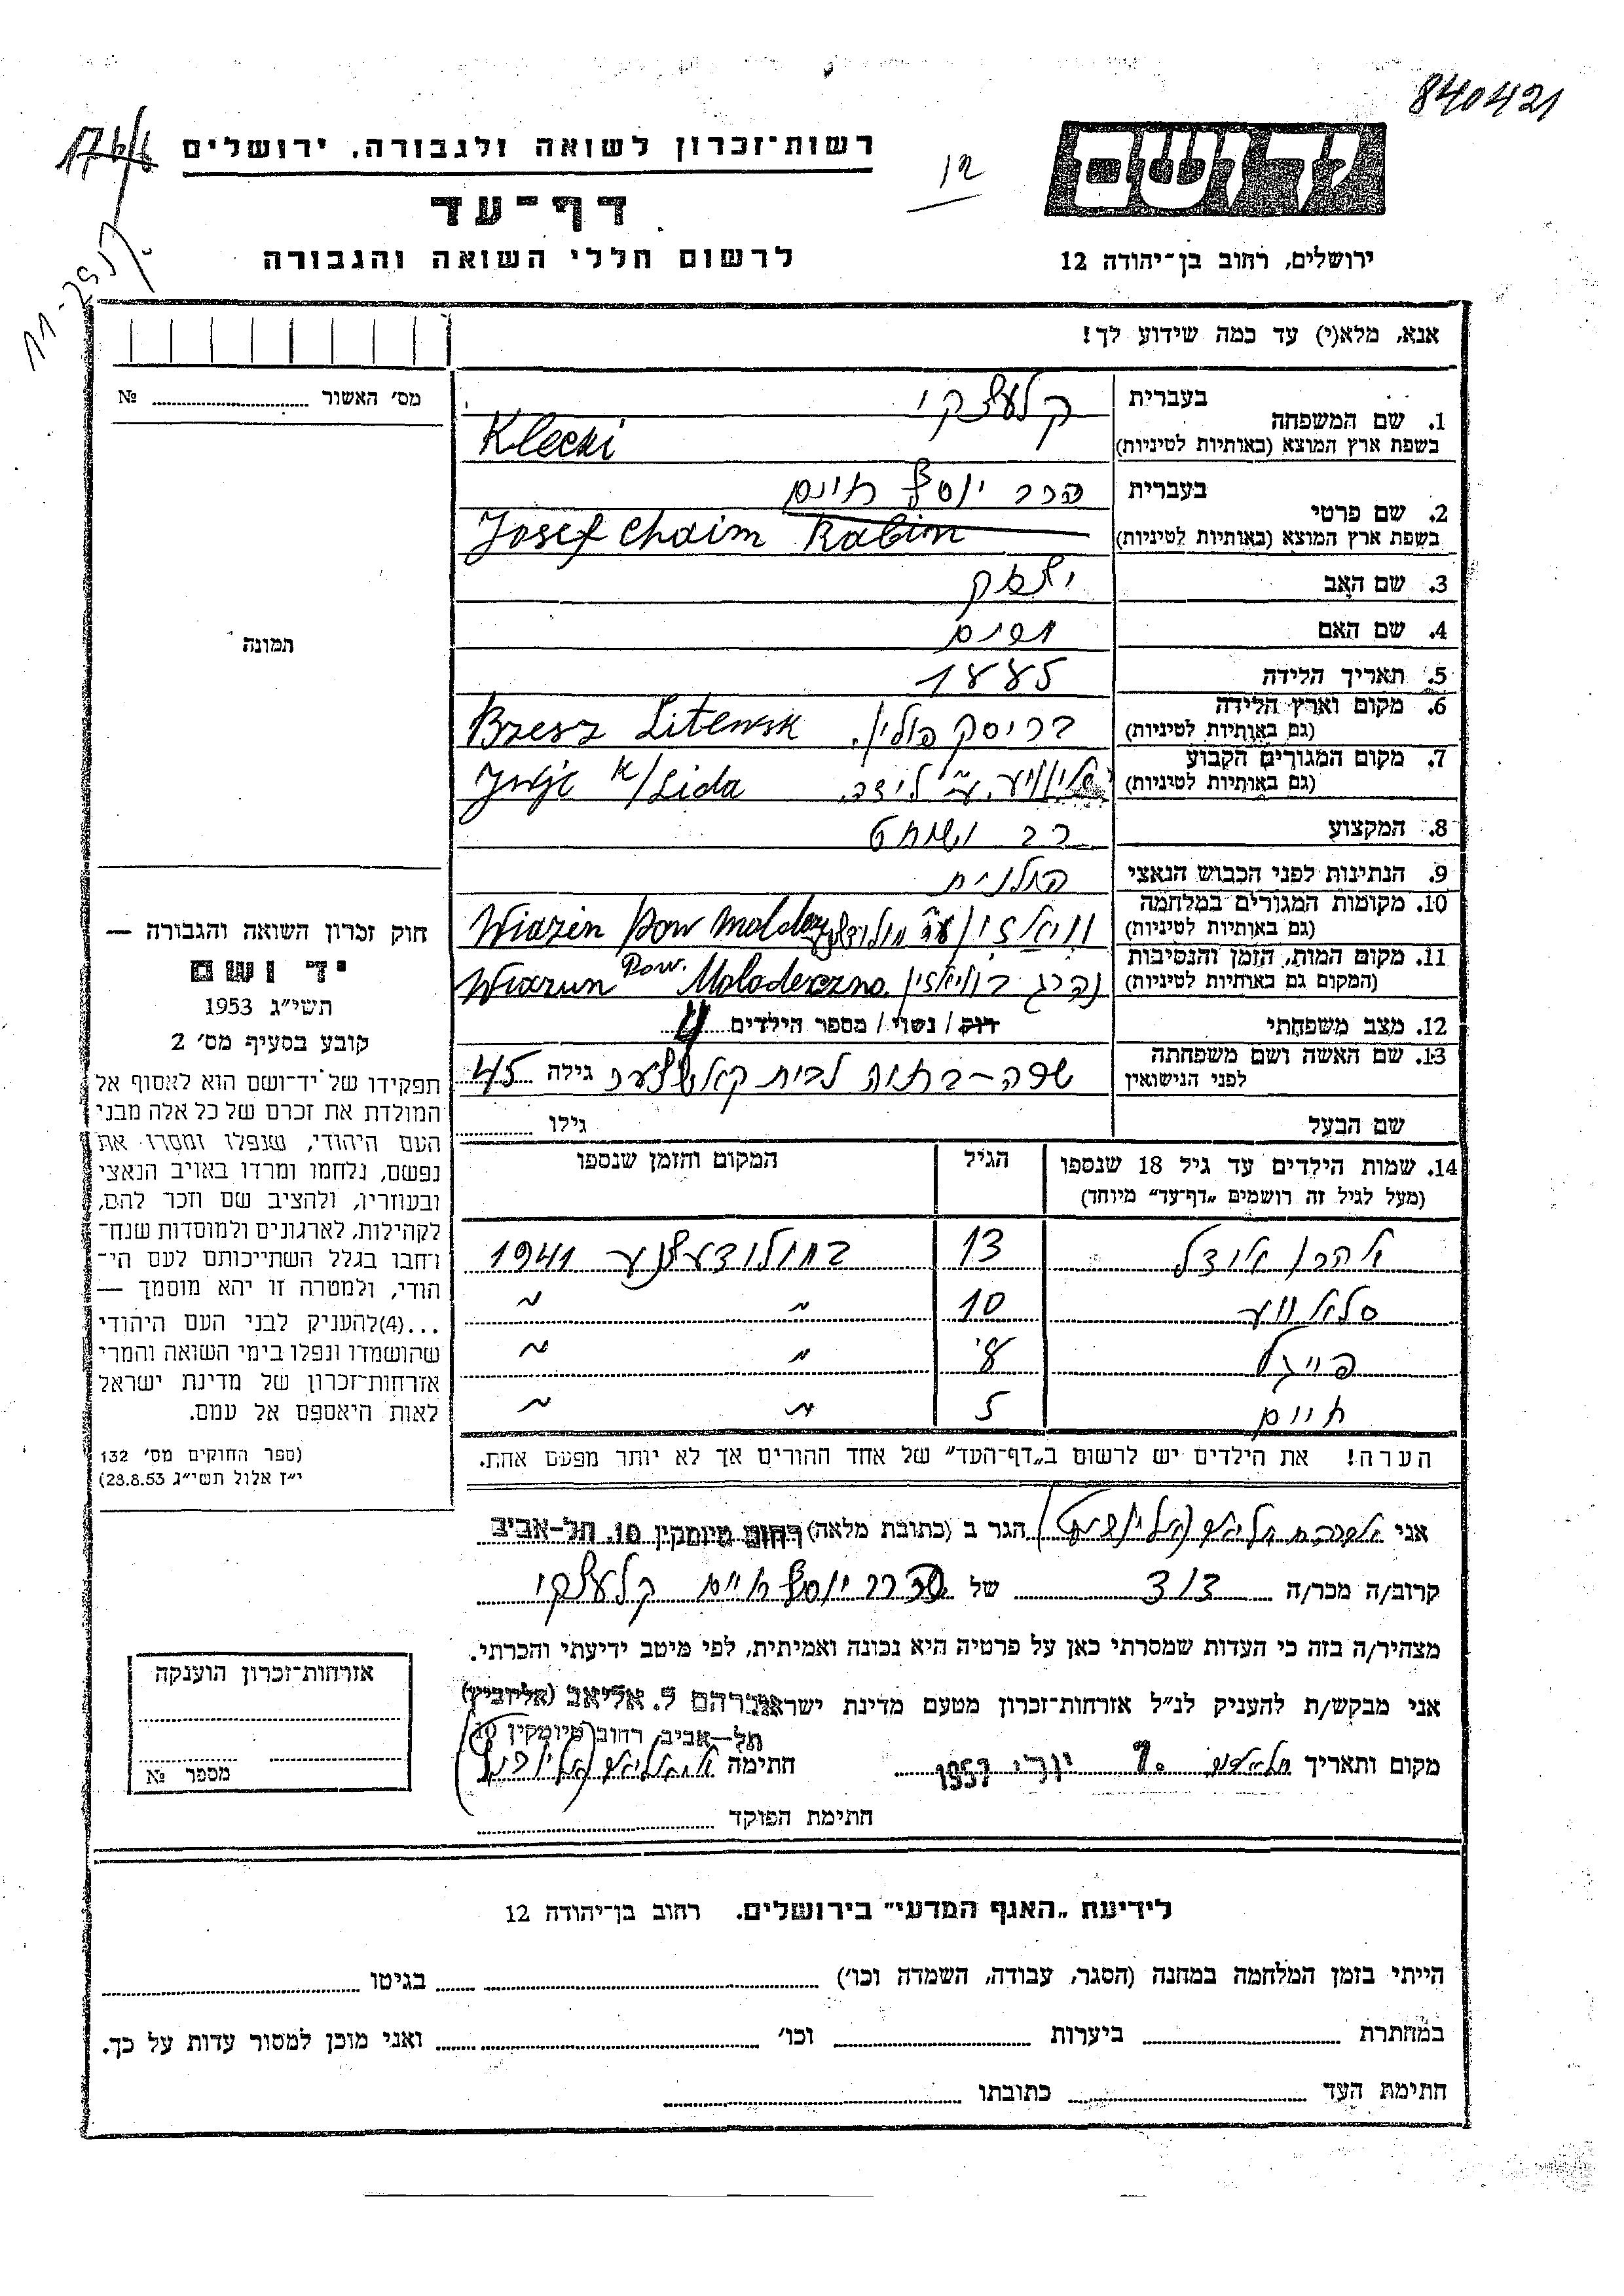 840421
רשות־זכרון לשואה ולגבורה, ירושלים
12
דף־עד
לרשום חללי השואה והגבורה
ירושלים, רחוב בן־יהודה 12
אנא, מלא(י) עד כמה שידוע לך!
מס׳ האשור № 
1. שם המשפחה בעברית קלעצקי
בשפת ארץ המוצא (באותיות לטיניות) Klecki
2. שם פרטי בעברית הרב יוסף חיים
בשפת ארץ המוצא (באותיות לטיניות) Josef Chaim Rabin
3. שם האב יצחק
4. שם האם מרים
5. תאריך הלידה 1885
6. מקום וארץ הלידה
(גם באותיות לטיניות) בריסק פולין. Brzesz Litewsk
7. מקום המגורים הקבוע
(גם באותיות לטיניות) ע״י לידה. Iwje K/Lida
8. המקצוע רב ושוחט
9. הנתינות לפני הכבוש הנאצי פולנית
10. מקומות המגורים במלחמה
(גם באותיות לטיניות) Wiazin Pow Molodez
11. מקום המות, הזמן והנסיבות
(המקום גם באותיות לטיניות) נהרג בוויאזין Wiazun Pow. Molodeczno
12. מצב משפחתי רוק / נשוי / מספר הילדים 4
13. שם האשה ושם משפחתה
לפני הנישואין שרה־ לבית גילה 45
שם הבעל גילו
14. שמות הילדים עד גיל 18 שנספו
(מעל לגיל זה רושמים „דף־עד״ מיוחד)
הגיל
המקום והזמן שנספו
אהרן יודל 13 במולודעצנע 1941
סלאווע 10 ״ ״
פייגל 8 ״ ״
חיים 5 ״ ״
הערה! את הילדים יש לרשום ב„דף־העד״ של אחד ההורים אך לא יותר מפעם אחת.
תמונה
חוק זכרון השואה והגבורה —
יד ושם
תשי״ג 1953
קובע בסעיף מס׳ 2
תפקידו של יד־ושם הוא לאסוף אל
המולדת את זכרם של כל אלה מבני
העם היהודי, שנפלו ומסרו את
נפשם, נלחמו ומרדו באויב הנאצי
ובעוזריו, ולהציב שם וזכר להם,
לקהילות, לארגונים ולמוסדות שנח־
רחבו בגלל השתייכותם לעם הי־
הודי, ולמטרה זו יהא מוסמך —
...(4)להעניק לבני העם היהודי
שהושמדו ונפלו בימי השואה והמרי
אזרחות־זכרון של מדינת ישראל
לאות היאספם אל עמם.
(ספר החוקים מס׳ 132
י״ז אלול תשי״ג 28.8.53)
אני אברהם אליאב (אליוביץ) הגר ב (כתובת מלאה) רחוב טיומקין 10, תל־אביב
קרוב/ה מכר/ה דוד של הרב יוסף חיים קלעצקי
מצהיר/ה בזה כי העדות שמסרתי כאן על פרטיה היא נכונה ואמיתית, לפי מיטב ידיעתי והכרתי.
אני מבקש/ת להעניק לנ״ל אזרחות־זכרון מטעם מדינת ישראל
אברהם ל. אליאב (אליוביץ)
תל־אביב, רחוב טיומקין 10
מקום ותאריך 7. יולי 1957 חתימה
חתימת הפוקד
אזרחות־זכרון הוענקה
מספר №
לידיעת „האגף המדעי״ בירושלים. רחוב בן־יהודה 12
הייתי בזמן המלחמה במחנה (הסגר, עבודה, השמדה וכו׳) בגיטו
במחתרת ביערות וכו׳ ואני מוכן למסור עדות על כך.
חתימת העד כתובתו